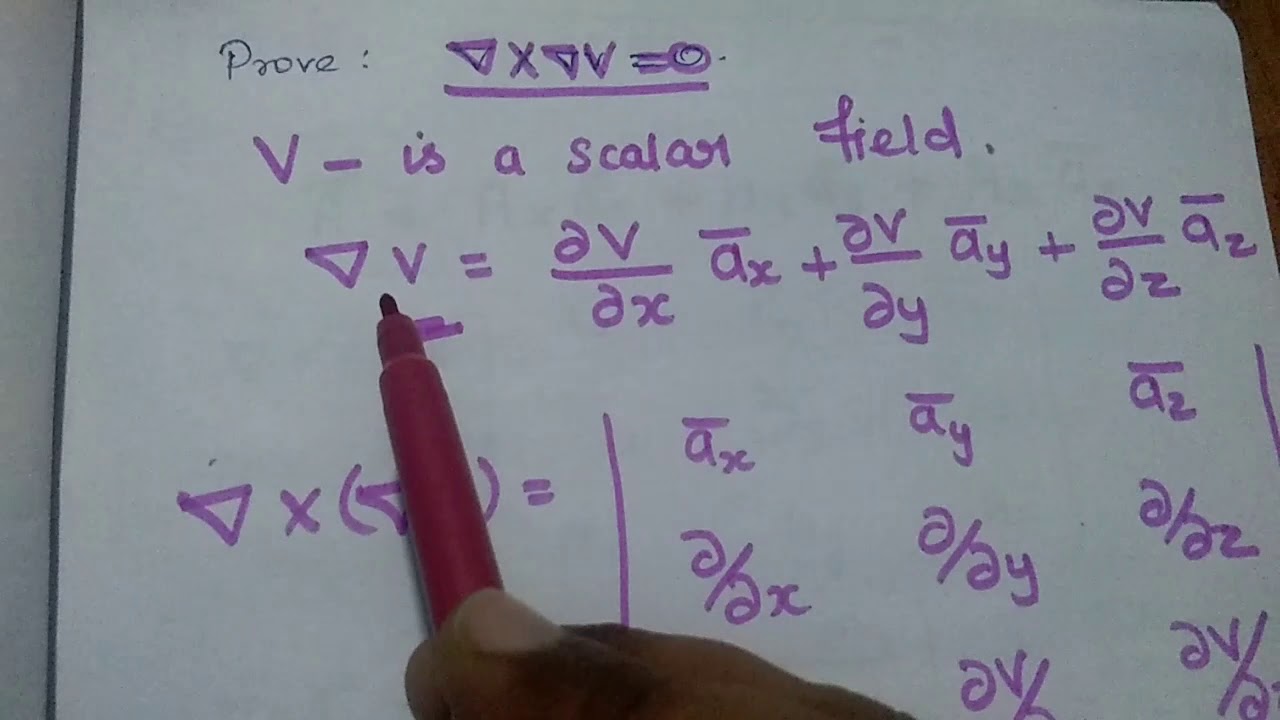 Prove : ∇ X ∇V = 0.
V - is a scalar field.
∇ V = ∂V/∂x a̅x + ∂V/∂y a̅y + ∂V/∂z a̅z
∇ X (∇ ) = | a̅x a̅y a̅z |
∂/∂x ∂/∂y ∂/∂z
∂V/ ∂V/